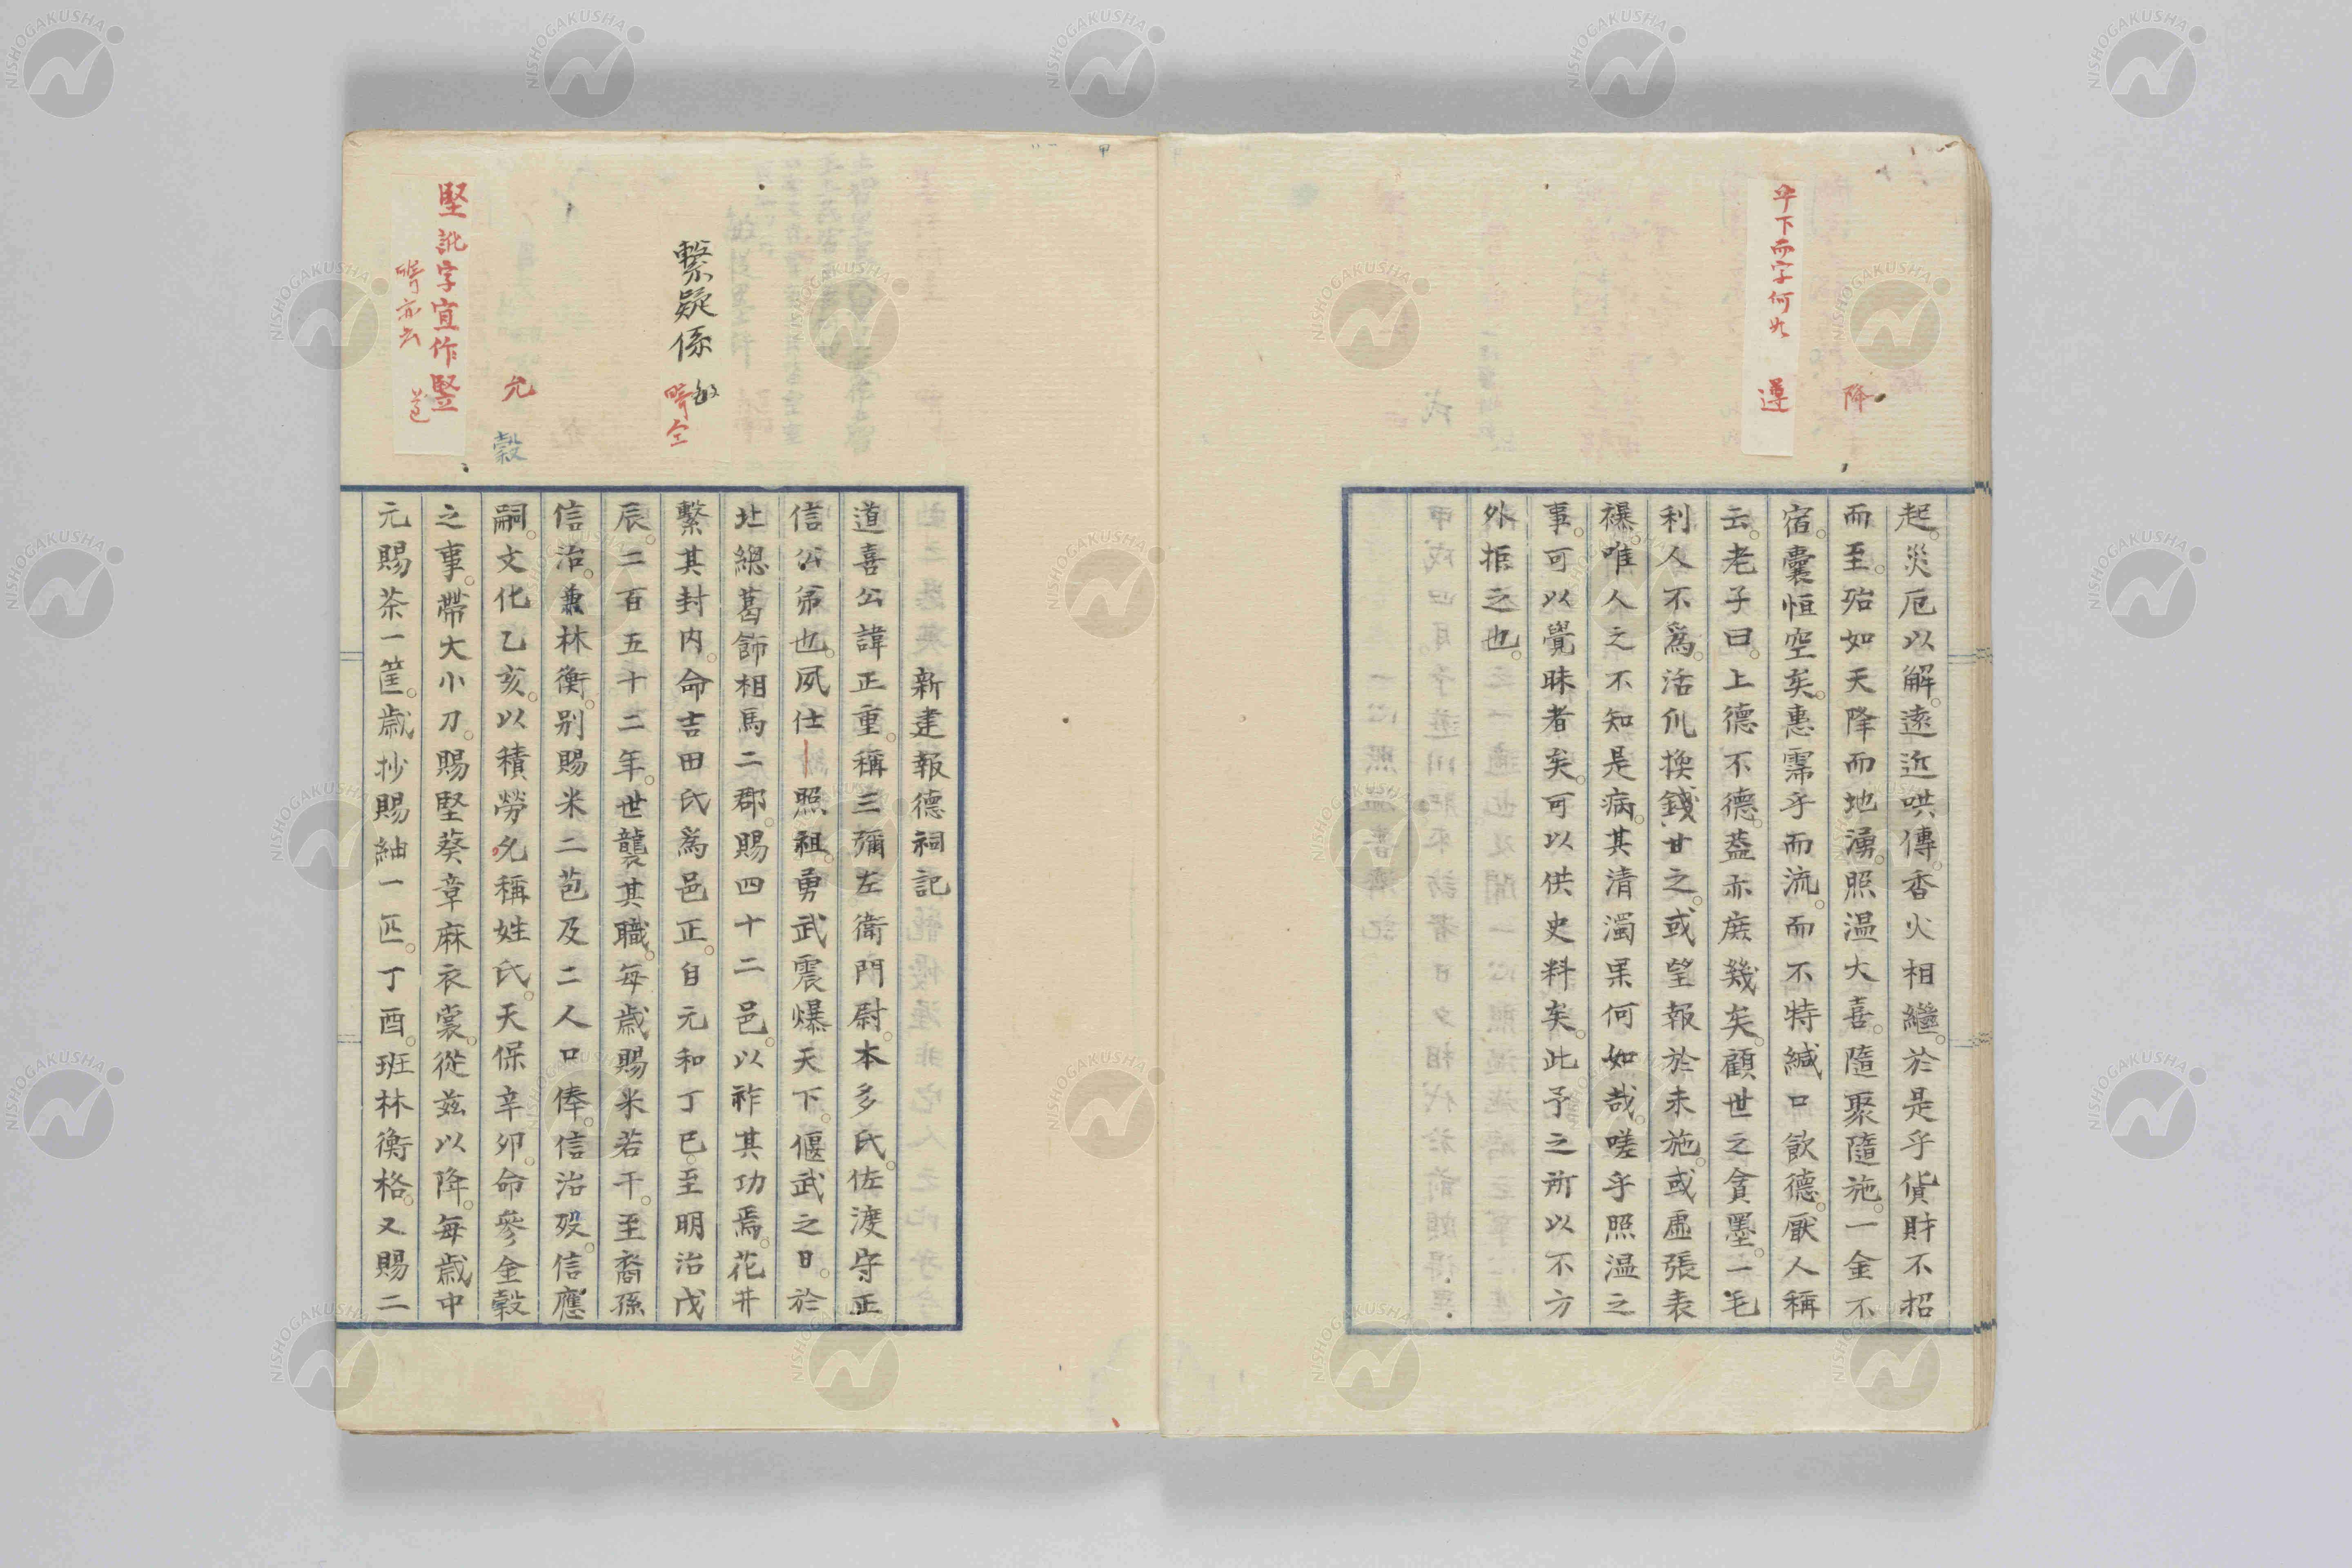 降
乎下而字何如
遵
起。災厄以解。遠近哄傳。香火相繼。於是乎貨財不招
而至。殆如天降而地湧。照温大喜。隨聚隨施。一金不
宿。囊恒空矣。惠霈乎而流。而不特緘口飲德。厭人稱
云。老子曰。上德不德。蓋亦庶幾矣。顧世之貪墨。一毛
利人不爲。活仉換錢甘之。或望報於未施。或虛張表
襮。唯人之不知是病。其清濁果何如哉。嗟乎照温之
事。可以覺昧者矣。可以供史料矣。此予之所以不方
外拒之也。
繫疑係
敏
咢仝
允
穀
堅訛字宜作竪
咢亦云
新建報德祠記
道喜公諱正重。稱三彌左衛門尉。本多氏。佐渡守正
信公弟也。夙仕照祖。勇武震爆天下。偃武之日。於
北總葛飾相馬二郡。賜四十二邑。以祚其功焉。花井
繫其封内。命吉田氏爲邑正。自元和丁巳。至明治戊
辰。二百五十二年。世襲其職。每歲賜米若干。至裔孫
信治。兼林衡。别賜米二苞及二人口俸。信治歿。信應
嗣。文化乙亥。以積勞允稱姓氏。天保辛卯。命參金穀
之事。帶大小刀。賜堅葵章麻衣裳。從茲以降。每歲中
元賜茶一筐。歲抄賜紬一匹。丁酉。班林衡格。又賜二
NISHOGAKUSHA